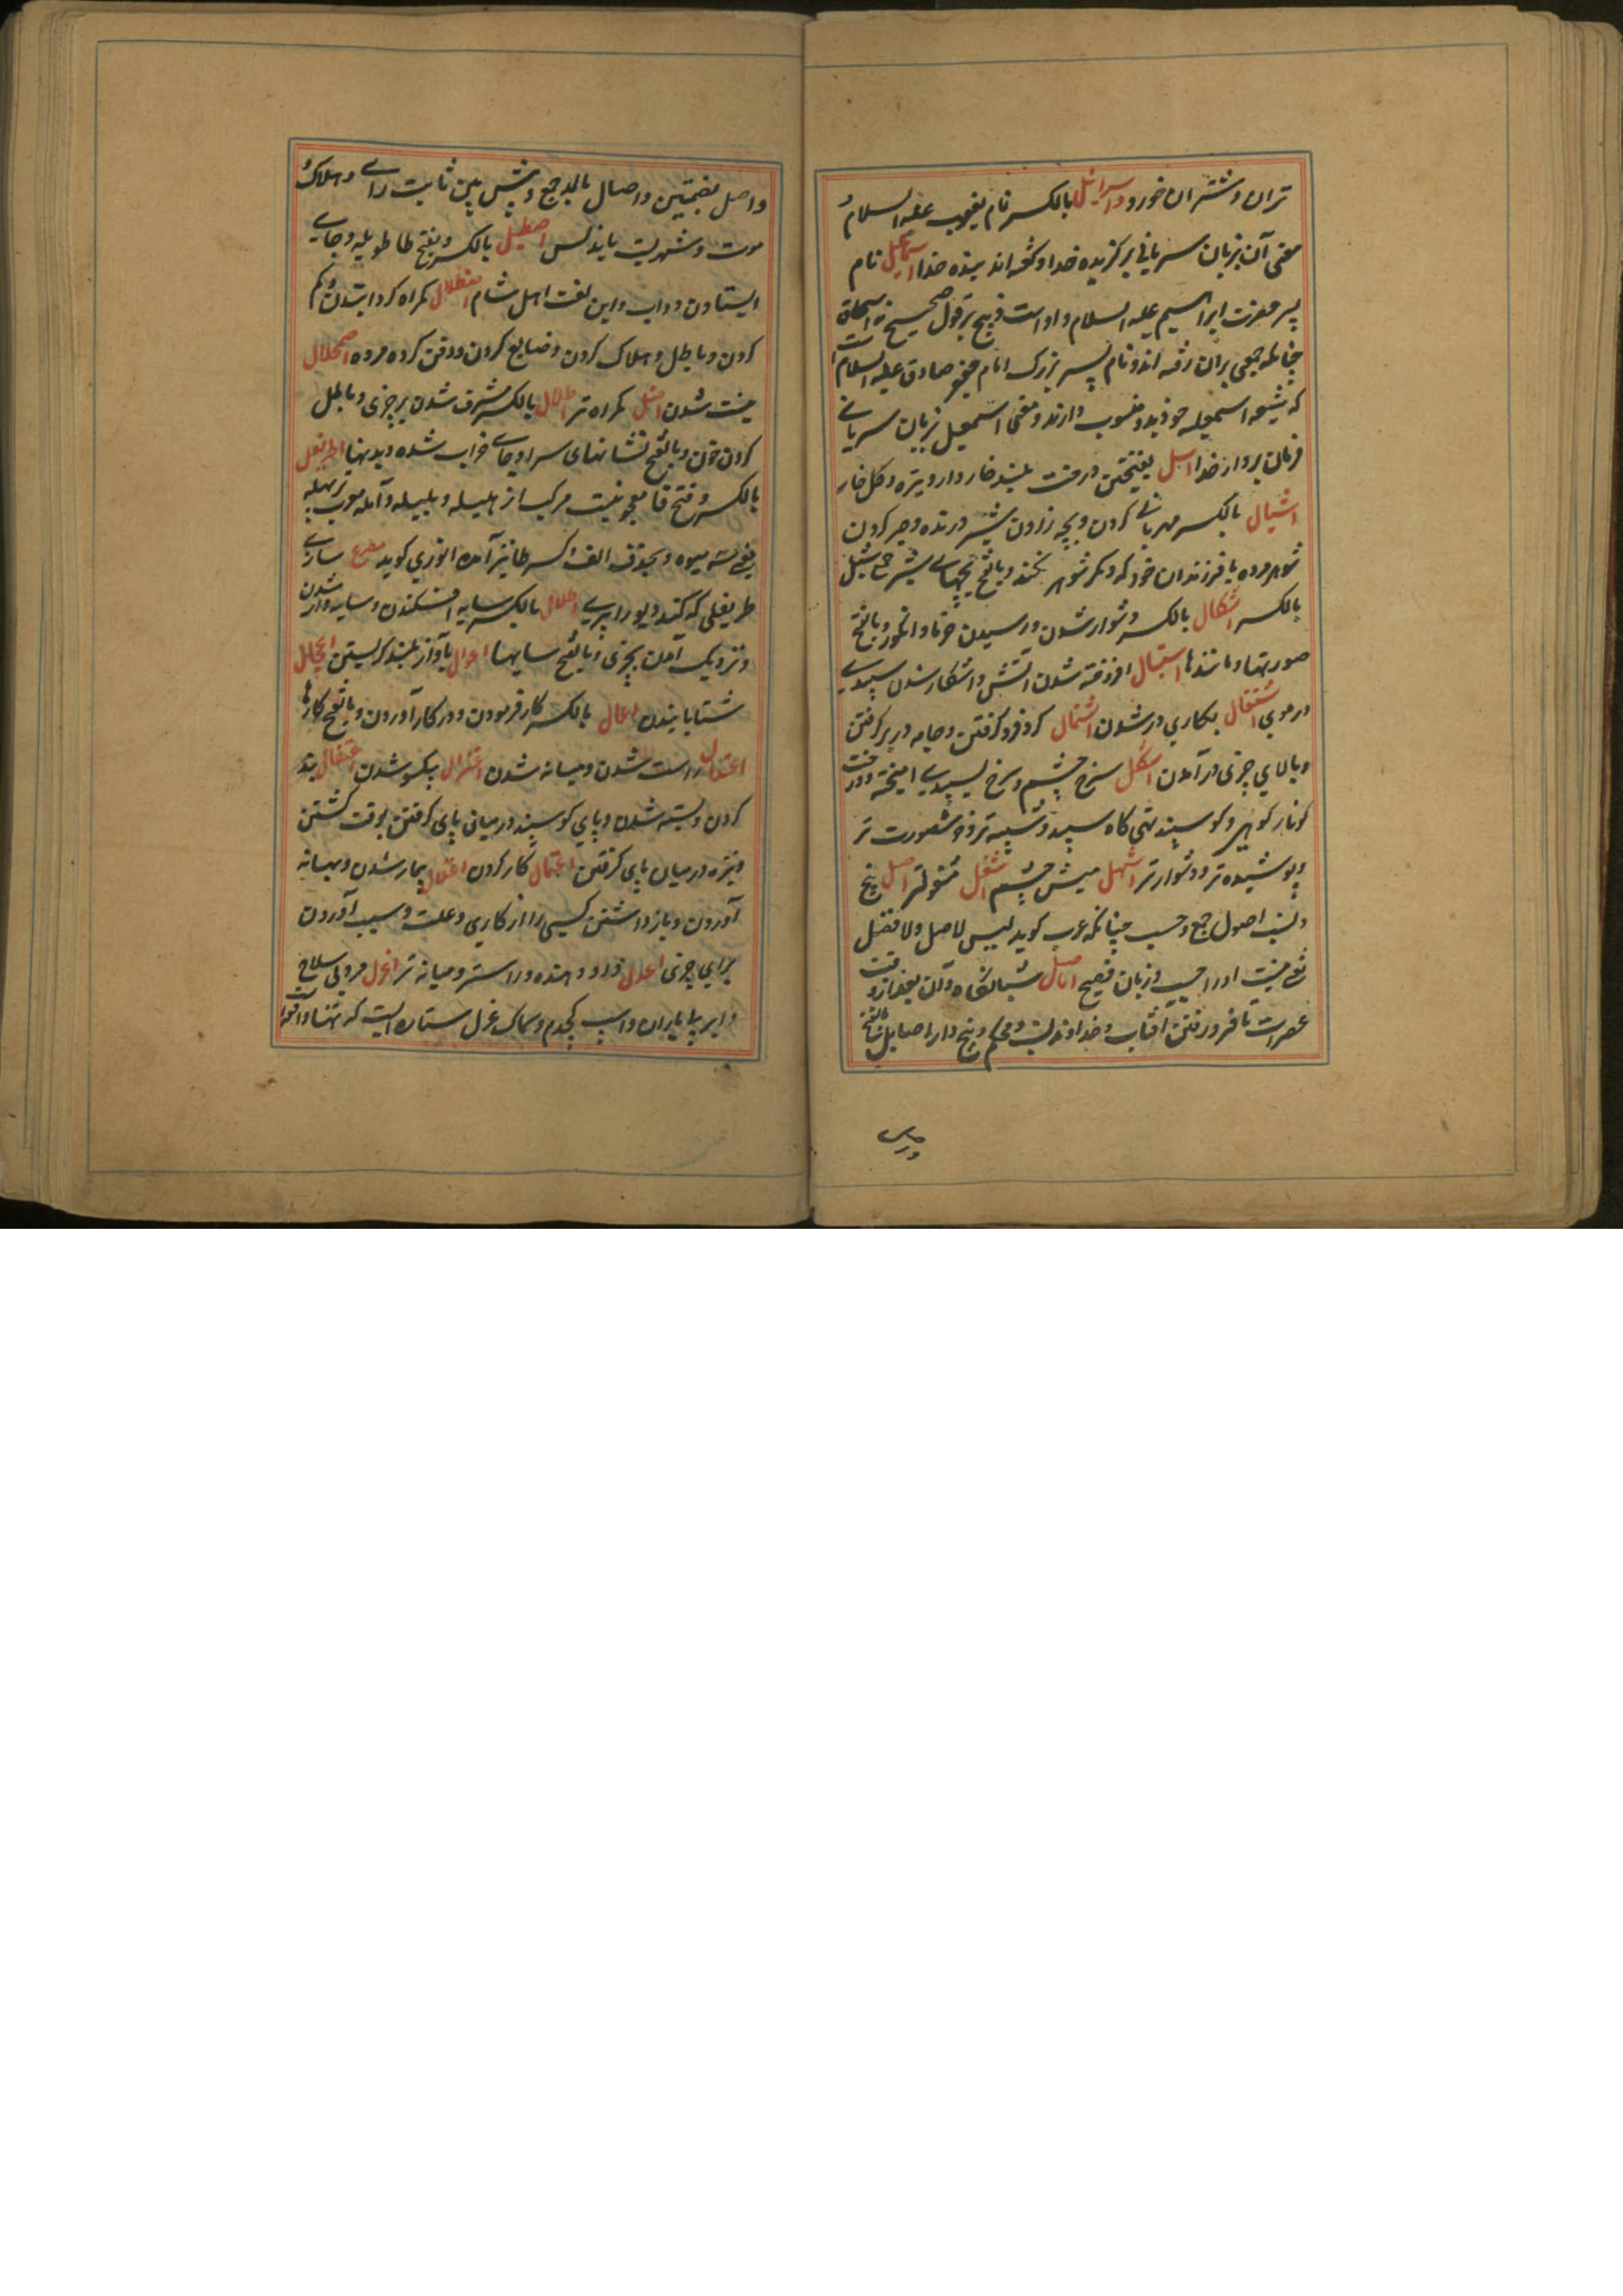 تران و شتران خورد و اسرائیل بالکسر نام یعقوب علیه السلام
معنی آن بزبان سریانی برگزیده خدا و گفته اند بنده خدا اسمعیل نام
پسر حضرت ابراهیم علیه السلام و اوست ذبیح بر قول صحیح نه اسحاق
چنانچه جمعی بران رفته اند و نام پسر بزرگ امام جعفر صادق علیه السلام است
که شیعه اسمعیلیه خود بدو منسوب دارند و معنی اسمعیل بزبان سریانی
فرمان بردار خدا اسل بفتحتین درخت بلند خار دار و نیزه و کل خار
اشبال بالکسر مهربانی کردن و بچه زادن شیر درنده و صبر کردن
شوهر مرده با فرزندان خود که دیگر شوهر نکند و بالفتح بچهای شیر جمع شبل
بالکسر اشکال بالکسر دشوار شدن و رسیدن خرما و انگور و بالفتح
صورتها و مانندها اشتعال افروخته شدن آتش و آشکار شدن سپیدی
در موی اشتغال بکاری در شدن اشتمال گرد فرو گرفتن و جامه در بر گرفتن
و بالای چیزی در آمدن اشکل سرخ چشم و سرخ بسپیدی امیخته و درخت
کونار کوهی و کوسپند تهی گاه سپید و شبیه تر و خوبصورت تر
و پوشیده تر و دشوار تر اشهل میش چشم اشغل مشغولتر اصل بیخ
و نسب اصول جمع و حسب چنانکه عرب گوید لیس لاصل ولا فصل
یعنی نیست او را حسب و زبان فصیح اصال شبانگاه و آن بعد از وقت
عصر است تا فرو رفتن افتاب و خداوند نسب و محکم و بیخ دار اصایل بالفتح
واصل بضمتین و اصال بالمد جمع و پس پین ثابت رای و هلاک
موت و شهریست باندلس اصطبل بالکسر و بفتح طا طویله و جای
ایستادن دواب و این لغت اهل شام اضلال گمراه کردانیدن و گم
کردن و باطل و هلاک کردن و ضایع کردن و دفن کرده مرده اضمحلال
نیست شدن اضل گمراه تر اطلال بالکسر مشرف شدن بر چیزی و باطل
کردن خون و بالفتح نشانهای سرا و جای خراب شده و بدنها اطریفل
بالکسر و فتح فا معجونیست مرکب از هلیله و بلیله و آمله معرب تریهله
یعنی سه میوه و بحذف الف و کسر طا نیز آمده انوری گوید مصرع سازی
طریفلی که کند دیو را پری اظلال بالکسر سایه افکندن و سایه دار شدن
و نزدیک آمدن بچیزی و بالفتح سایها اعوال بآواز بلند گریستن اعجال
شتابانیدن اعمال بالکسر کار فرمودن و در کار آوردن و بالفتح کارها
اعتدال راست شدن و میانه شدن اعتزال یکسو شدن اعتقال بند
کردن و بسته شدن و پای کوسپند در میان پای گرفتن بوقت کشتن
و نیزه در میان پای گرفتن اعتمال کار کردن اعتلال بیمار شدن و بهانه
آوردن و باز داشتن کسی را از کاری و علت و سبب آوردن
برای چیزی اعدل داد دهنده و راستر و میانه تر اعزل مرد بی سلاح
و ابر بی باران و اسب کجدم و سماک اعزل ستاره ایست که تنها واقع است